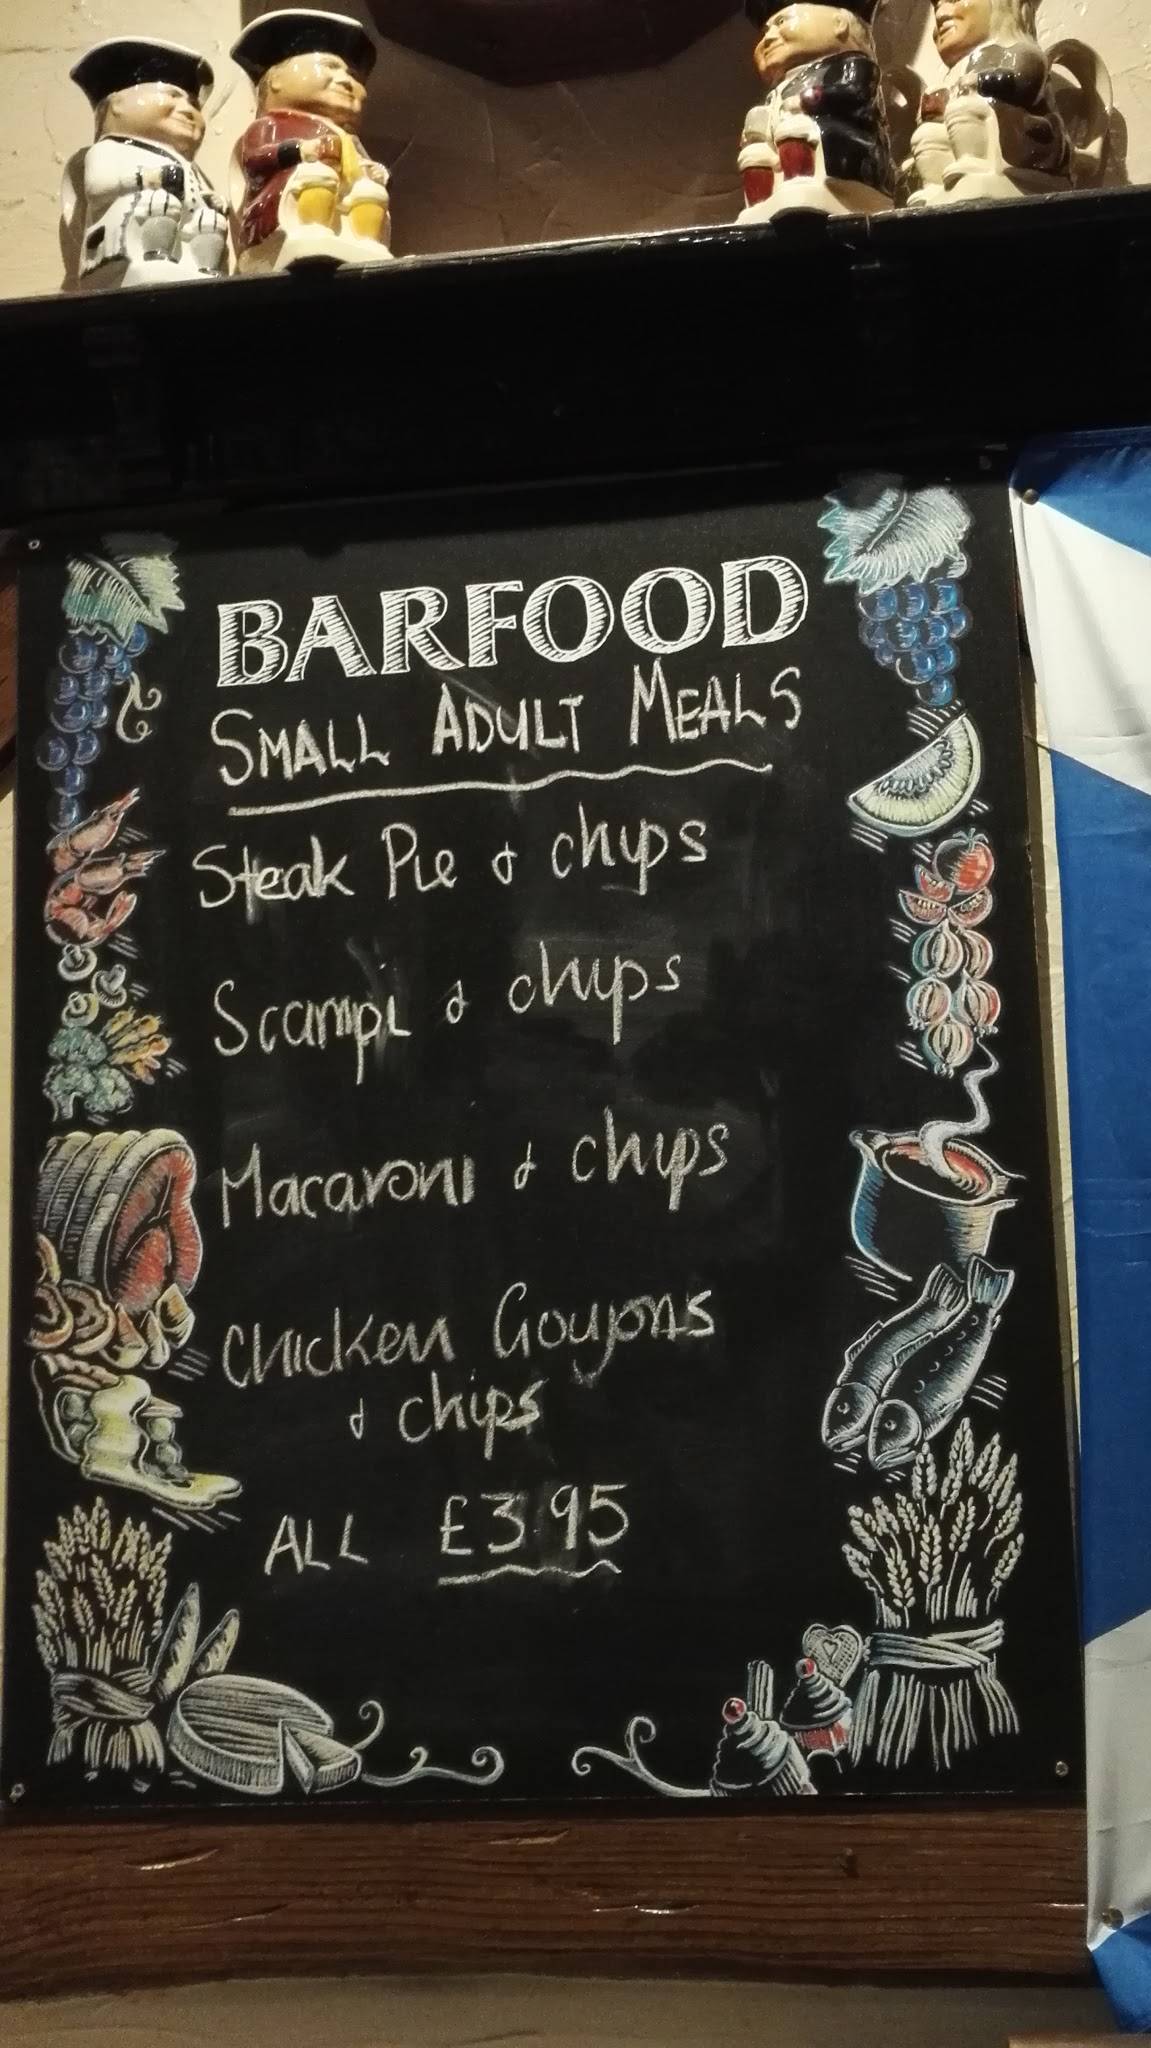 BARFOOD
SMALL ADULT MEALS
Steak Pie & chips
Scampi & chips
Macaroni & chips
Chicken Goujons
& chips
ALL £3.95